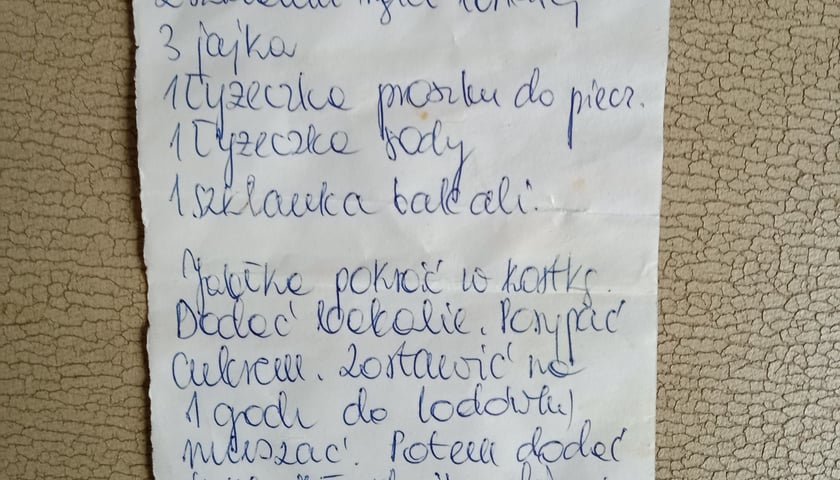 3 jajka
1 łyżeczka proszku do piecz.
1 łyżeczka sody
1 szklanka bakali.
Jabłka pokroić w kostkę.
Dodać bakalie. Posypać
cukrem. Zostawić na
1 godz do lodówki
mieszać. Potem dodać